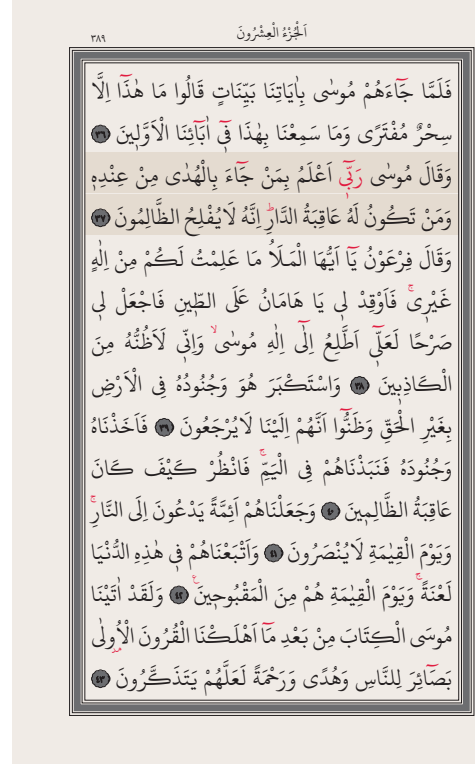 اَلْجُزْءُ الْعِشْرُونَ
٣٨٩
فَلَمَّا جَٓاءَهُمْ مُوسٰى بِاٰيَاتِنَا بَيِّنَاتٍ قَالُوا مَا هٰذَٓا اِلَّا
سِحْرٌ مُفْتَرًى وَمَا سَمِعْنَا بِهٰذَا ف۪ٓي اٰبَٓائِنَا الْاَوَّل۪ينَ ﴿٣٦﴾
وَقَالَ مُوسٰى رَبّ۪ٓي اَعْلَمُ بِمَنْ جَٓاءَ بِالْهُدٰى مِنْ عِنْدِه۪
وَمَنْ تَكُونُ لَهُ عَاقِبَةُ الدَّارِۜ اِنَّهُ لَا يُفْلِحُ الظَّالِمُونَ ﴿٣٧﴾
وَقَالَ فِرْعَوْنُ يَٓا اَيُّهَا الْمَلَاُ مَا عَلِمْتُ لَكُمْ مِنْ اِلٰهٍ
غَيْر۪يۚ فَاَوْقِدْ ل۪ي يَا هَامَانُ عَلَى الطّ۪ينِ فَاجْعَلْ ل۪ي
صَرْحًا لَعَلّ۪ٓي اَطَّلِعُ اِلٰٓى اِلٰهِ مُوسٰىۙ وَاِنّ۪ي لَاَظُنُّهُ مِنَ
الْكَاذِب۪ينَ ﴿٣٨﴾ وَاسْتَكْبَرَ هُوَ وَجُنُودُهُ فِي الْاَرْضِ
بِغَيْرِ الْحَقِّ وَظَنُّٓوا اَنَّهُمْ اِلَيْنَا لَا يُرْجَعُونَ ﴿٣٩﴾ فَاَخَذْنَاهُ
وَجُنُودَهُ فَنَبَذْنَاهُمْ فِي الْيَمِّۚ فَانْظُرْ كَيْفَ كَانَ
عَاقِبَةُ الظَّالِم۪ينَ ﴿٤٠﴾ وَجَعَلْنَاهُمْ اَئِمَّةً يَدْعُونَ اِلَى النَّارِۚ
وَيَوْمَ الْقِيٰمَةِ لَا يُنْصَرُونَ ﴿٤١﴾ وَاَتْبَعْنَاهُمْ ف۪ي هٰذِهِ الدُّنْيَا
لَعْنَةًۚ وَيَوْمَ الْقِيٰمَةِ هُمْ مِنَ الْمَقْبُوح۪ينَ۟ ﴿٤٢﴾ وَلَقَدْ اٰتَيْنَا
مُوسَى الْكِتَابَ مِنْ بَعْدِ مَٓا اَهْلَكْنَا الْقُرُونَ الْاُو۫لٰى
بَصَٓائِرَ لِلنَّاسِ وَهُدًى وَرَحْمَةً لَعَلَّهُمْ يَتَذَكَّرُونَ ﴿٤٣﴾